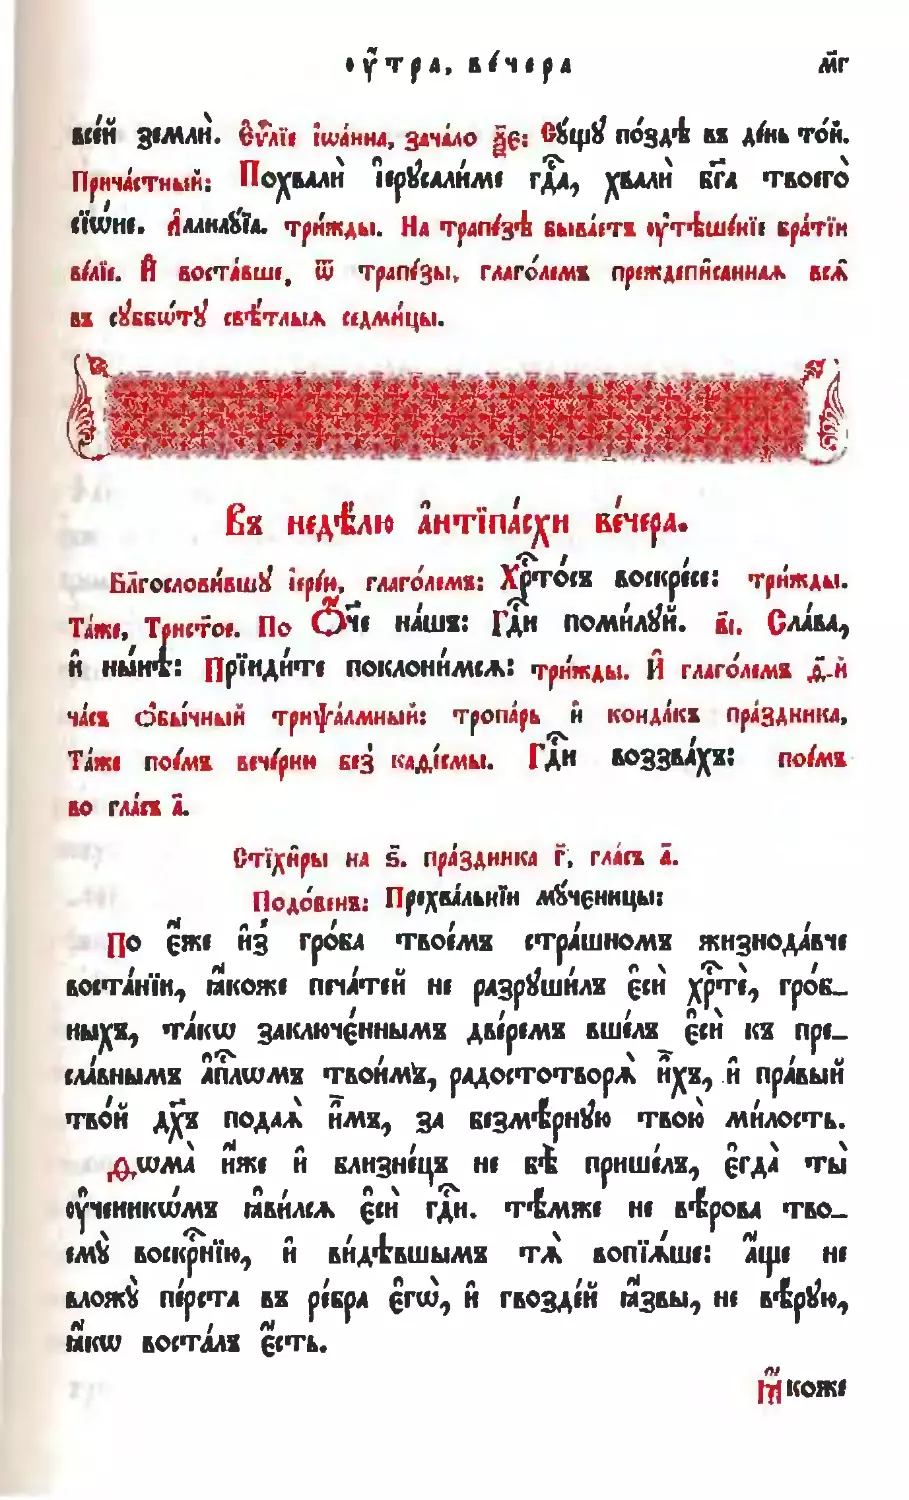 ᲂу҆́тра, ве́чера м҃г
все́й землѝ. Є҆ѵⷢ҇лїе і҆ѡа́нна, зача́ло ѯ҃є: Сꙋ́щꙋ по́здѣ въ де́нь то́й.
Прича́стный: Похвалѝ і҆ерⷭ҇али́ме гдⷭ҇а, хвалѝ бг҃а твоего̀
сїѡ́не. А҆ллилꙋ́їа. три́жды. На трапе́зѣ быва́етъ ᲂу҆тѣше́нїе бра́тїи
ве́лїе. И҆ воста́вше, ѿ трапе́зы, глаго́лемъ преждепи́санная всѧ̑
въ сꙋббѡ́тꙋ свѣ́тлыѧ седми́цы.
Въ недѣ́лю а҆нтїпа́схи ве́чера.
Бл҃гослови́вшꙋ і҆ере́и, глаго́лемъ: Хрⷭ҇то́съ воскре́се: три́жды.
Та́же, Трист҃о́е. По Ѻ҆́ч҃е на́шъ: Гдⷭ҇и поми́лꙋй. в҃і. Сла́ва,
И҆ ны́нѣ: Прїиди́те поклони́мсѧ: три́жды. И҆ глаго́лемъ д҃-й
ча́съ ѻ҆бы́чный трипсⷢ҇а́лмный: тропа́рь и҆ конда́къ пра́здника,
Та́же пое́мъ вече́рни без̾ каді́смы. Гдⷭ҇и воззва́хъ: пое́мъ
во гла́съ а҃.
Стїхи̑ры на ѕ҃. пра́здника г҃, гла́съ а҃.
Подо́венъ: Прехва́льнїи мꙋ́чєницы:
По є҆́же и҆з̾ гро́ба твое́мъ стра́шномъ жизнода́вче
воста́нїи, ꙗ҆́коже печа́тей не разрꙋши́лъ є҆сѝ хрⷭ҇тѐ, гро́б_
ныхъ, та́кѡ заключє́ннымъ две́ремъ вше́лъ є҆сѝ къ пре_
сла́внымъ а҆пⷭ҇лѡмъ твои̑мъ, радостотворѧ̀ и҆̀хъ, и҆ пра́вый
тво́й дх҃ъ пода́ѧ и҆̀мъ, за безмѣ́рнꙋю твою̀ ми́лость.
Дѡма̀ и҆́же и҆ близне́цъ не бѣ̀ прише́лъ, є҆гда̀ ты̀
ᲂу҆ченикѡ́мъ ꙗ҆ви́лсѧ є҆сѝ гдⷭ҇и. тѣ́мже не вѣ́рова тво_
емꙋ̀ воскрⷭ҇нїю, и҆ ви́дѣвшымъ тѧ̀ вопїѧ́ше: а҆́ще не
вложꙋ̀ пе́рста въ ре́бра є҆гѡ̀, и҆ гвозде́й ꙗ҆́звы, не вѣ́рꙋю,
ꙗ҆́кѡ воста́лъ є҆́сть.
Ꙗ҆́коже